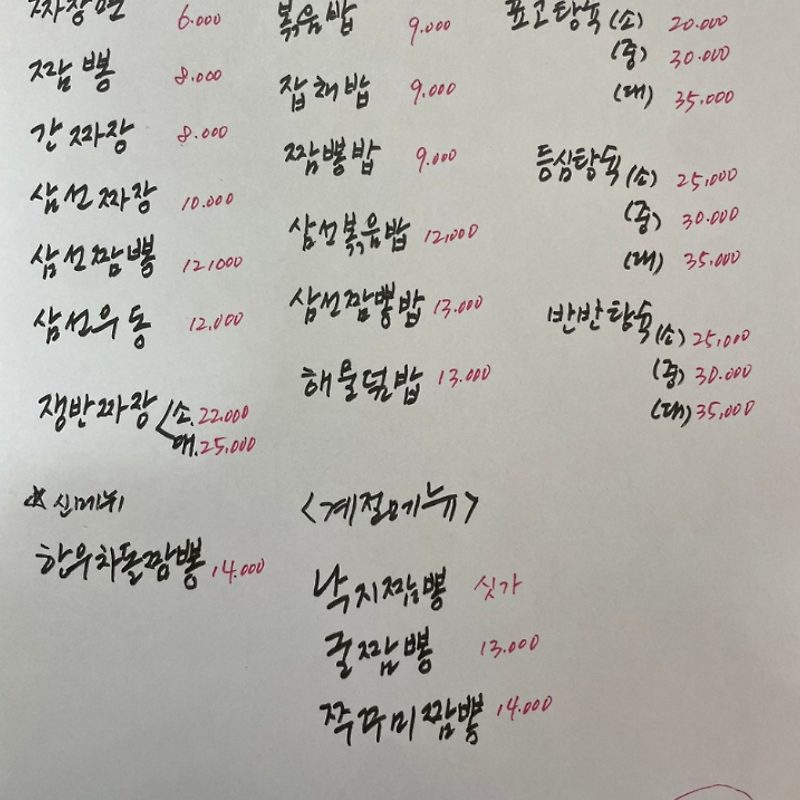 짜장면 6.000
짬뽕 8.000
간짜장 8.000
삼선짜장 10.000
삼선짬뽕 12,000
삼선우동 12.000
쟁반짜장 소.22.000
대.25.000
☆ 신메뉴
한우차돌짬뽕 14.000
볶음밥 9.000
잡채밥 9.000
짬뽕밥 9.000
삼선볶음밥 12,000
삼선짬뽕밥 13.000
해물덮밥 13.000
<계절메뉴>
낙지짬뽕 싯가
굴짬뽕 13.000
쭈꾸미짬뽕 14.000
표고탕숙 (소) 20.000
(중) 30.000
(대) 35,000
등심탕숙 (소) 25,000
(중) 30.000
(대) 35,000
반반탕숙 (소) 25,000
(중) 30.000
(대) 35,000